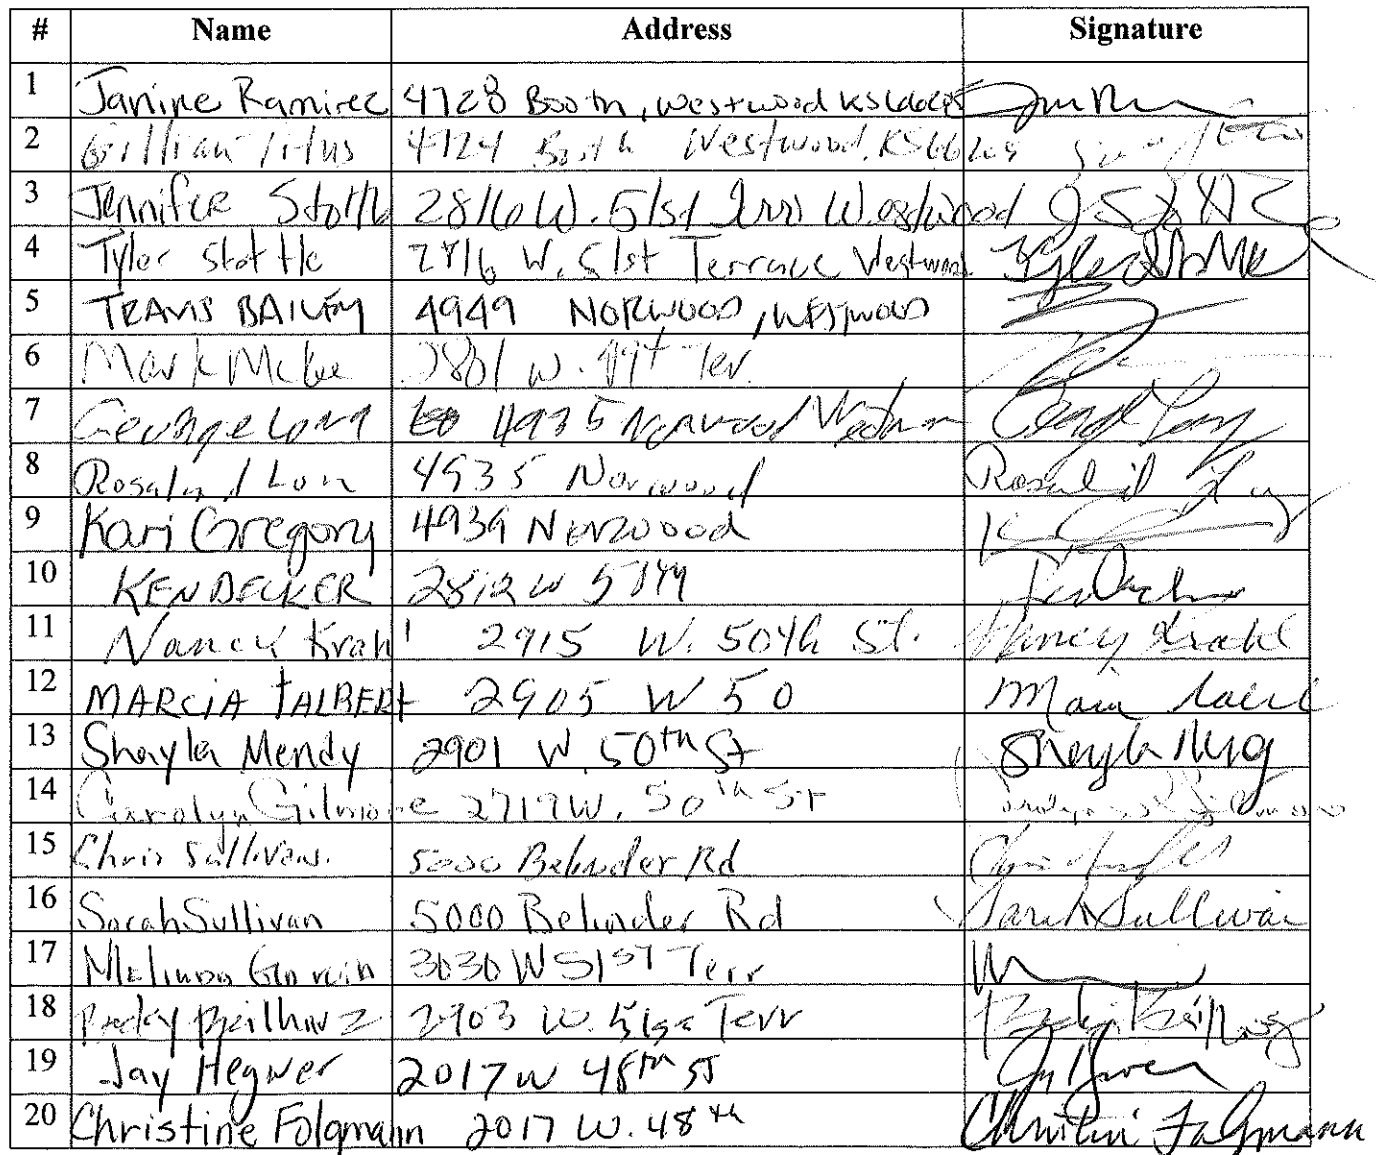 # Name Address Signature
1 Janine Ramirez 4728 Booth, Westwood KS 66205
2 Gillian Titus 4724 Booth Westwood, KS 66205
3 Jennifer Stottle 2816 W. 51st Terr Westwood
4 Tyler Stottle 2816 W. 51st Terrace Westwood Tyler Stottle
5 TRAVIS BAILEY 4949 NORWOOD, WESTWOOD
6 Mark McKee 2801 W. 49t Ter.
7 George Long 4935 Norwood George Long
8 Rosalind Lon 4935 Norwood Rosalind Long
9 Kari Gregory 4939 Norwood
10 KEN DECKER 2812 W Ken Decker
11 Nancy Krahl 2915 W. 50th St. Nancy Krahl
12 MARCIA TALBERT 2905 W 50
13 Shayla Mendy 2901 W. 50th St
14 Carolyn Gilmore 2719 W. 50th St
15 Chris Sullivan. 5000 Belinder Rd
16 Sarah Sullivan 5000 Belinder Rd Sarah Sullivan
17 Melinda 3030 W 51st Terr
18 Becky Beilharz 2903 W. 51st Terr
19 Jay Hegner 2017 W 48th ST
20 Christine Folgmann 2017 W. 48th Christine Folgmann